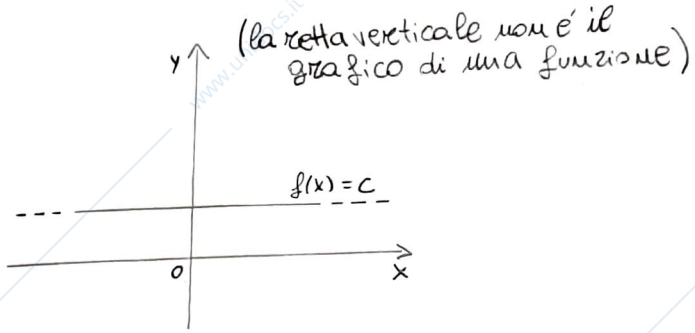 (la retta verticale non é il
grafico di una funzione)
y
f(x) = c
O
x